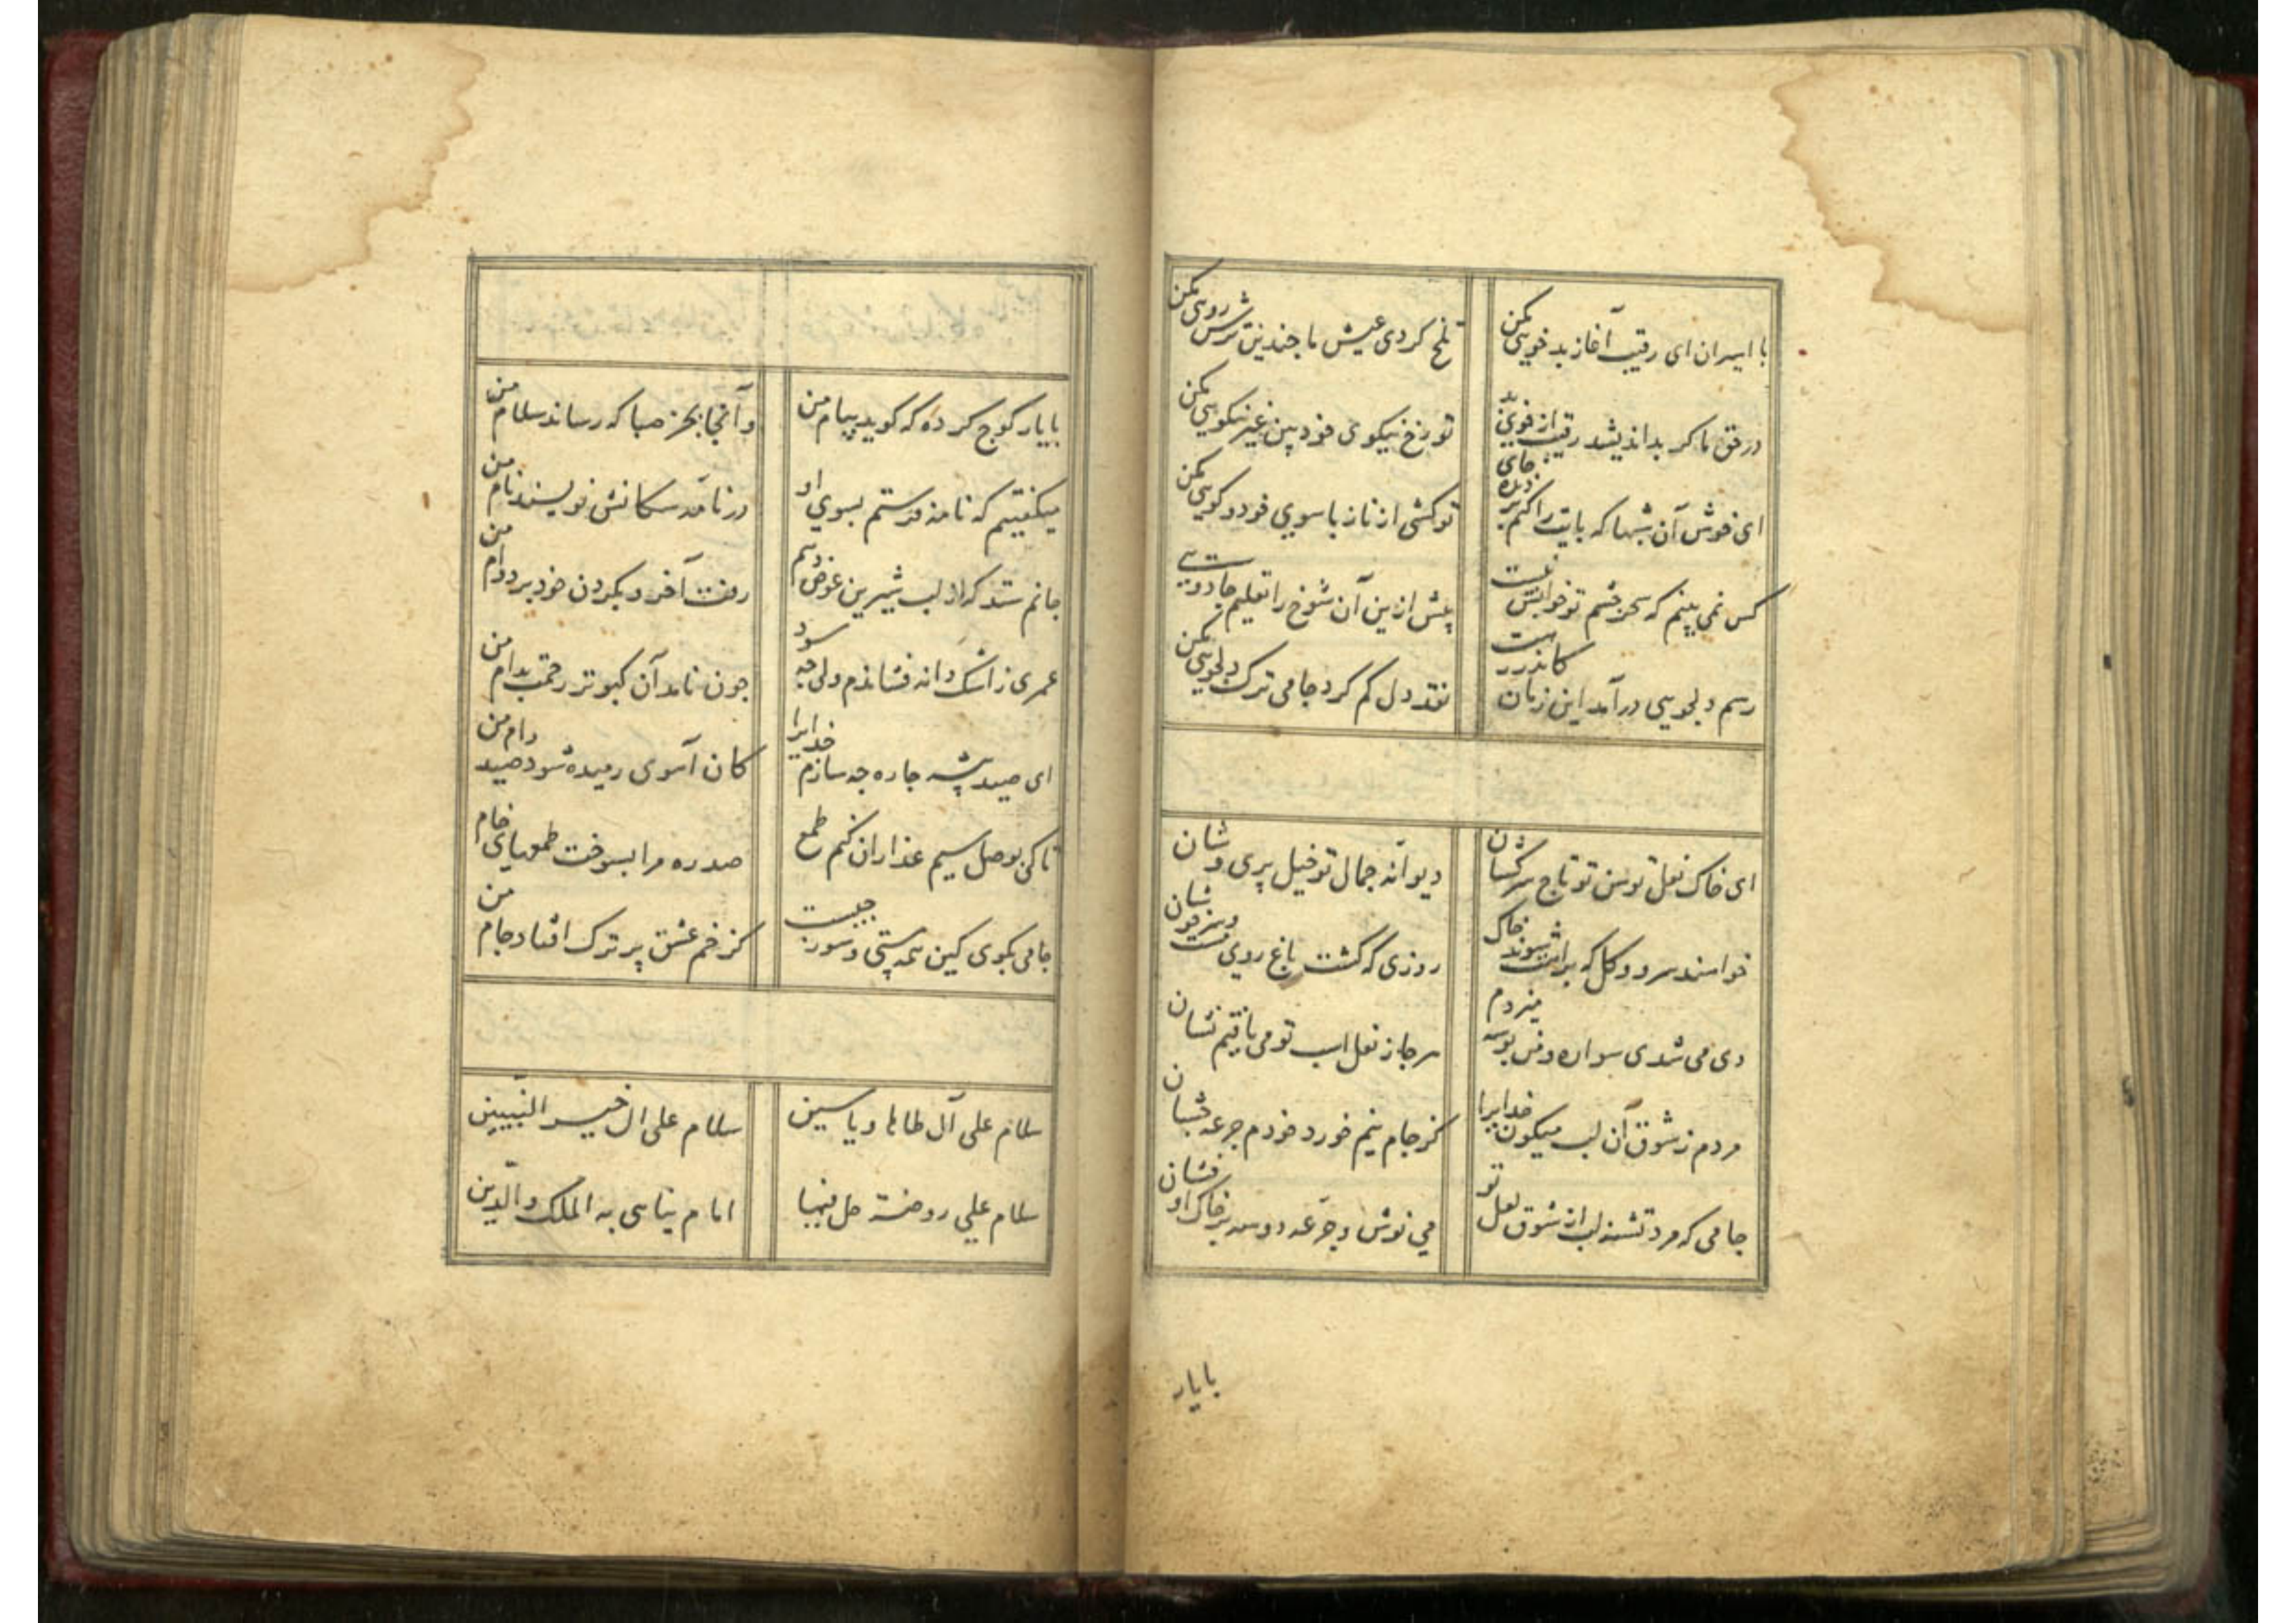 با اسیران ای رقیب آغاز بد خویی مکن
تلخ کردی عیش ما چندین ترش رویی مکن
در حق ما کر بد اندیشد رقیب از خوی بد
تو رخ نیکوی خود بین غیر نیکویی مکن
ای خوش آن شبها که بایت را کنم بر دیده جای
تو کشی از ناز با سوی خود و کویی مکن
کس نمی بینم که سحر چشم تو خوابش نبست
بیش ازین آن شوخ را تعلیم جادویی
رسم دلجویی در آمد این زمان
نقد دل کم کرد جامی ترک دلجویی مکن
ای خاک نعل توسن تو تاج سرکشان
دیوانه جمال تو خیل پری وشان
خواهند سرو و کل که براهت شوند خاک
روزی که کشت باغ روی
دی می شدی سواره و من بوسه میزدم
هر جا ز نعل اسب تو می یافتم نشان
مردم ز شوق آن لب میکون خدایرا
کز جام نیم خورد خودم جرعه چشان
جامی که مرد تشنه لب از شوق لعل تو
می نوش و جرعه دو سه بر خاک او فشان
بایار
بایار کوچ کرده که کوید پیام من
و آنجا بجز صبا که رساند سلام من
میکفتیم که نامه فرستم بسوی او
در نامه سکانش نویسند نام من
جانم ستد که از لب شیرین عوض دهم
رفت آخر و بکردن خود برد وام من
عمری ز اشک دانه فشاندم ولی چه سود
چون نامد آن کبوتر رحمت بدام من
ای صید پیشه چاره چه سازم خدایرا
کان آهوی رمیده شود صید دام من
تا کی بوصل سیم عذاران کنم طمع
صد ره مرا بسوخت طمعهای خام
جامی بکوی کین همه مستی و شور چیست
کز خم عشق پر ترک افتاد جام من
سلام علی آل طاها و یاسین
سلام علی ال خیر النبیین
سلام علی روضة حل فیها
امام یباهی به الملک والدین